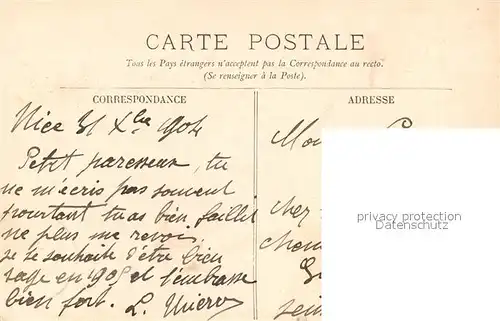 CARTE POSTALE
Tous les Pays étrangers n'acceptent pas la Correspondance au recto.
(Se renseigner à la Poste).
CORRESPONDANCE
ADRESSE
Nice 31 Xbre 1904
Petit paresseux, tu
ne m'écris pas souvent
pourtant tu as bien failli
ne plus me revoir.
je te souhaite d'être bien
sage en 1905 et t'embrasse
bien fort. L.
chez
privacy protection
Datenschutz